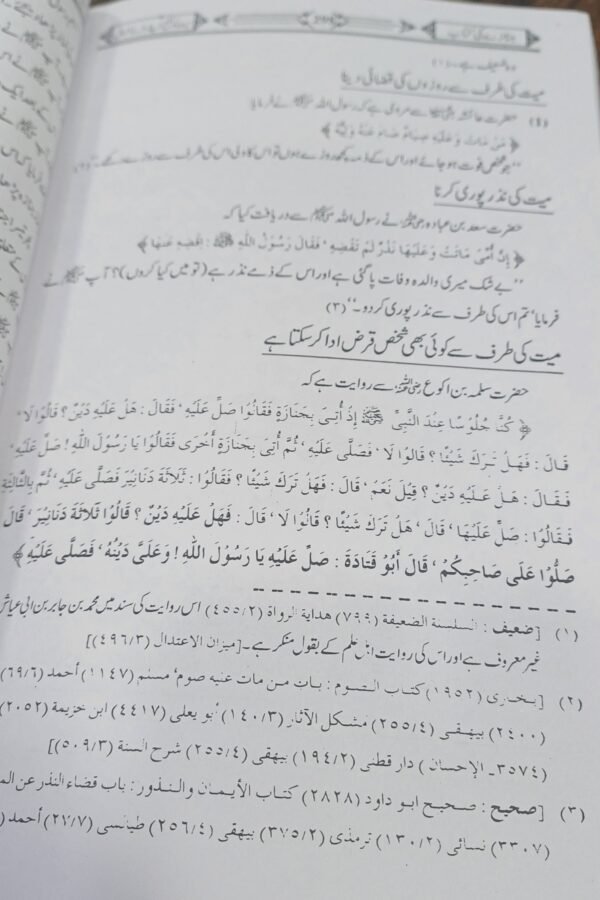 جنازے کی کتاب
ضعیف ہے۔(۱)
میت کی طرف سے روزوں کی قضائی دینا
(1) حضرت عائشہ رضی اللہ عنہا سے مروی ہے کہ رسول اللہ ﷺ نے فرمایا
﴿ مَنْ مَاتَ وَعَلَيْهِ صِيَامٌ صَامَ عَنْهُ وَلِيُّهُ ﴾
”جو شخص فوت ہو جائے اور اس کے ذمہ کچھ روزے ہوں تو اس کا ولی اس کی طرف سے روزے رکھے۔“(۲)
میت کی نذر پوری کرنا
حضرت سعد بن عبادہ رضی اللہ عنہ نے رسول اللہ ﷺ سے دریافت کیا کہ
﴿ إِنَّ أُمِّي مَاتَتْ وَعَلَيْهَا نَذْرٌ لَمْ تَقْضِهِ ' فَقَالَ رَسُولُ اللهِ ﷺ : اقْضِهِ عَنْهَا ﴾
”بے شک میری والدہ وفات پا گئی ہے اور اس کے ذمے نذر ہے (تو میں کیا کروں)؟ آپ ﷺ نے
فرمایا' تم اس کی طرف سے نذر پوری کر دو۔“(۳)
میت کی طرف سے کوئی بھی شخص قرض ادا کر سکتا ہے
حضرت سلمہ بن اکوع رضی اللہ عنہ سے روایت ہے کہ
﴿ كُنَّا جُلُوسًا عِنْدَ النَّبِيِّ ﷺ إِذْ أُتِيَ بِجَنَازَةٍ فَقَالُوا صَلِّ عَلَيْهِ ' فَقَالَ : هَلْ عَلَيْهِ دَيْنٌ ؟ قَالُوا لَا '
قَالَ : فَهَلْ تَرَكَ شَيْئًا ؟ قَالُوا لَا ' فَصَلَّى عَلَيْهِ ' ثُمَّ أُتِيَ بِجَنَازَةٍ أُخْرَى فَقَالُوا يَا رَسُولَ اللهِ ! صَلِّ عَلَيْهِ '
فَقَالَ : هَلْ عَلَيْهِ دَيْنٌ ؟ قِيلَ نَعَمْ ' قَالَ : فَهَلْ تَرَكَ شَيْئًا ؟ فَقَالُوا : ثَلَاثَةَ دَنَانِيرَ فَصَلَّى عَلَيْهِ ' ثُمَّ بِالثَّالِثَةِ
فَقَالُوا : صَلِّ عَلَيْهَا ' قَالَ ' هَلْ تَرَكَ شَيْئًا ؟ قَالُوا لَا ' قَالَ : فَهَلْ عَلَيْهِ دَيْنٌ ؟ قَالُوا ثَلَاثَةَ دَنَانِيرَ ' قَالَ
صَلُّوا عَلَى صَاحِبِكُمْ ' قَالَ أَبُو قَتَادَةَ : صَلِّ عَلَيْهِ يَا رَسُولَ اللهِ ! وَعَلَيَّ دَيْنُهُ ' فَصَلَّى عَلَيْهِ ﴾
(۱) [ضعیف : السلسلة الضعيفة (۷۹۹) هداية الرواة (۴۵۵/۲) اس روایت کی سند میں محمد بن جابر بن ابی عیاش
غیر معروف ہے اور اس کی روایت اہل علم کے بقول منکر ہے۔ [میزان الاعتدال (۴۹۶/۳)]
(۲) [بخاری (۱۹۵۲) کتاب الصوم : باب من مات عليه صوم ' مسلم (۱۱۴۷) أحمد (۶۹/۶)
(۲۴۰۰) بیهقی (۲۵۵/۴) مشکل الآثار (۱۴۰/۳) أبو يعلى (۴۴۱۷) ابن خزيمة (۲۰۵۲)
(۳۵۷۴۔ الإحسان) دار قطنی (۱۹۴/۲) بیهقی (۲۵۵/۴) شرح السنة (۵۰۹/۳)]
(۳) [صحیح : صحیح ابو داود (۲۸۲۸) کتاب الأيمان والنذور : باب قضاء النذر عن
(۳۳۰۷) نسائی (۱۳۰/۲) ترمذی (۳۷۵/۲) بیهقی (۲۵۶/۴) طیالسی (۲۷/۷) أحمد